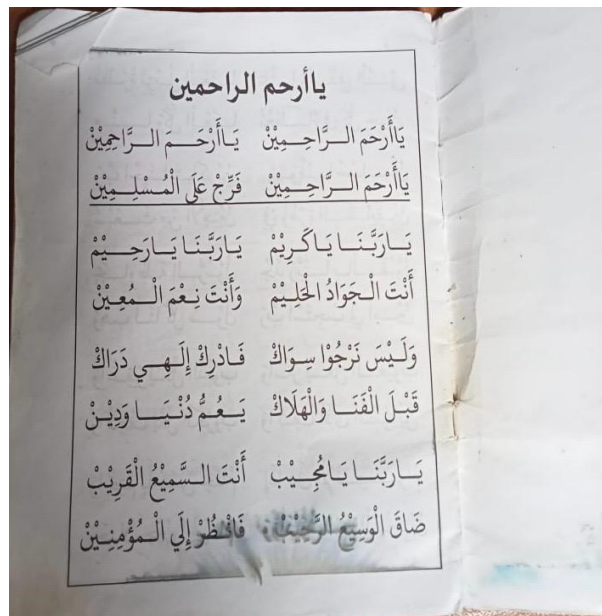 ياأرحم الراحمين
يَاأَرْحَمَ الـرَّاحِـمِيْنْ يَـاأَرْحَــمَ الـرَّاحِمِيْنْ
يَاأَرْحَمَ الـرَّاحِـمِيْنْ فَرِّجْ عَلَى الْمُسْلِـمِيْنْ
يَـارَبَّنَـا يَاكَرِيْمْ يَـارَبَّنَـا يَـارَحِـيْمْ
أَنْتَ الْـجَوَادُ الْحَلِـيْمْ وَأَنْتَ نِـعْمَ الْـمُعِيْنْ
وَلَـيْسَ نَرْجُوْا سِـوَاكْ فَـادْرِكْ إِلَـهِـي دَرَاكْ
قَبْـلَ الْفَنَـا وَالْهَلَاكْ يَـعُمُّ دُنْـيَـا وَدِيْـنْ
يَـارَبَّنَـا يَـامُجِـيْبْ أَنْتَ الـسَّمِيْعُ الْقَرِيْبْ
ضَاقَ الْوَسِيْعُ الرَّحِيْبْ فَانْـظُرْ إِلَي الْـمُؤْمِنِـيْنْ